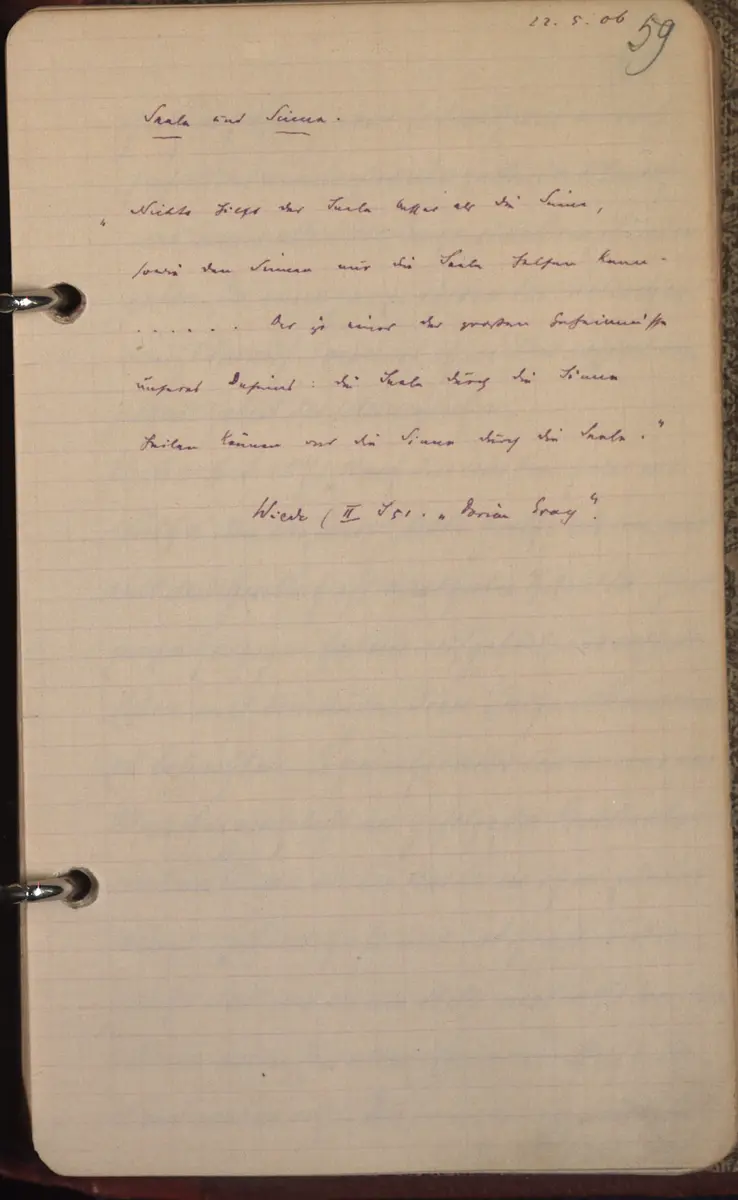 22. 5. 06
59
Seele und Sinne.
„Nichts hilft der Seele besser als die Sinne,
sowie den Sinnen nur die Seele helfen kann.
. . . . . . Das ist eines der grossen Geheimnisse
unseres Daseins: die Seele durch die Sinne
heilen können und die Sinne durch die Seele."
(II S 51. „Dorian Gray".